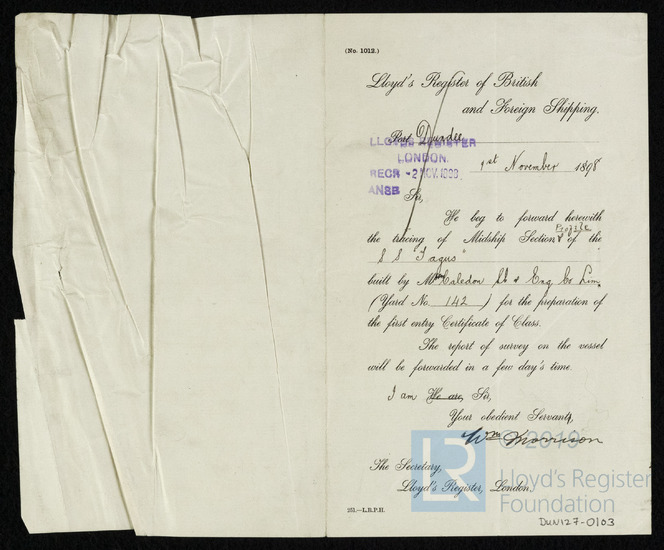 (No. 1012.)
Lloyd's Register of British
and Foreign Shipping.
Port Dundee
LLOYDS REGISTER
LONDON.
RECR -2 NOV. 1898
ANSD
1st November 1898
Sir,
We beg to forward herewith
the tracing of Midship Section & Profile of the
S S "Tagus"
built by Mess Caledon Sb & Eng Co Lim.
(Yard No. 142) for the preparation of
the first entry Certificate of Class.
The report of survey on the vessel
will be forwarded in a few day's time.
I am We are, Sir,
Your obedient Servants,
Wm Morrison
The Secretary,
Lloyd's Register, London.
251.—L.R.P.H.
LR
© 2019
Lloyd's Register
Foundation
DUN127-0103